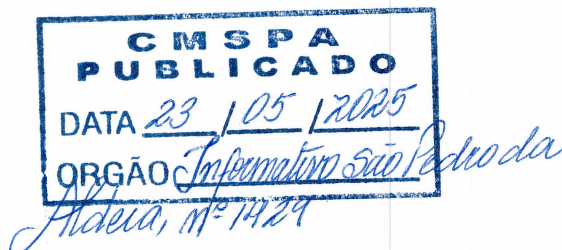 CMSPA
PUBLICADO
DATA 23 / 05 / 2025
ORGÃO Informativo São Pedro da
Aldeia, nº 1429